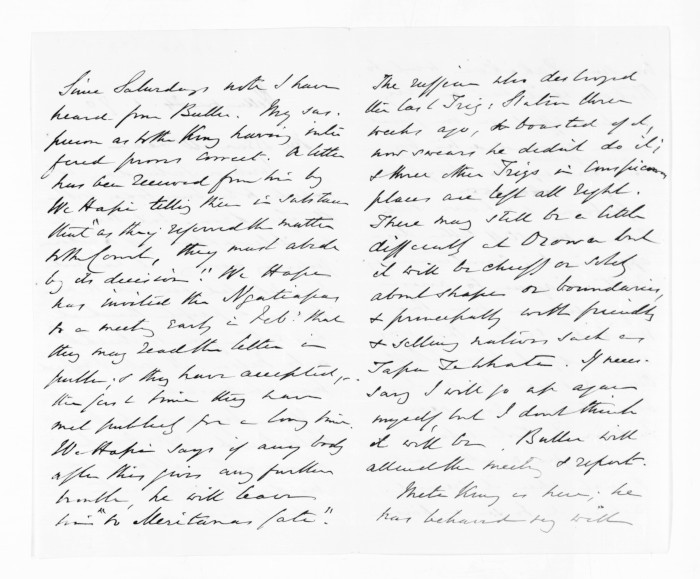 Since Saturdays note I have
heard from Buller. My sus-
picion as to the King having inter
fered proves correct. A letter
has been received from him by
Te Hapi telling them in substance
that "as they referred the matter
to the Court, they must abide
by its decision". Te Hape
has invited the Ngatiapas
to a meeting early in Feb: that
they may read the letter in
public, & they have accepted,
the first time they have
met publicly for a long time.
Te Hapi says if any body
after this gives any further
trouble, he will leave
him "to Meritanas fate".
The ruffian who destroyed
the last Trig: Station three
weeks ago, & boasted of it,
now swears he didn't do it;
& three other Trigs in conspicuous
places are left all right.
There may still be a little
difficulty at Oroua but
it will be chiefly or solely
about shape or boundaries,
& principally with friendly
& selling natives such as
Tapa Te Whata. If neces-
sary I will go up again
myself, but I dont think
it will be. Buller will
attend the meeting & report.
Mete King is here; he
has behaved very well